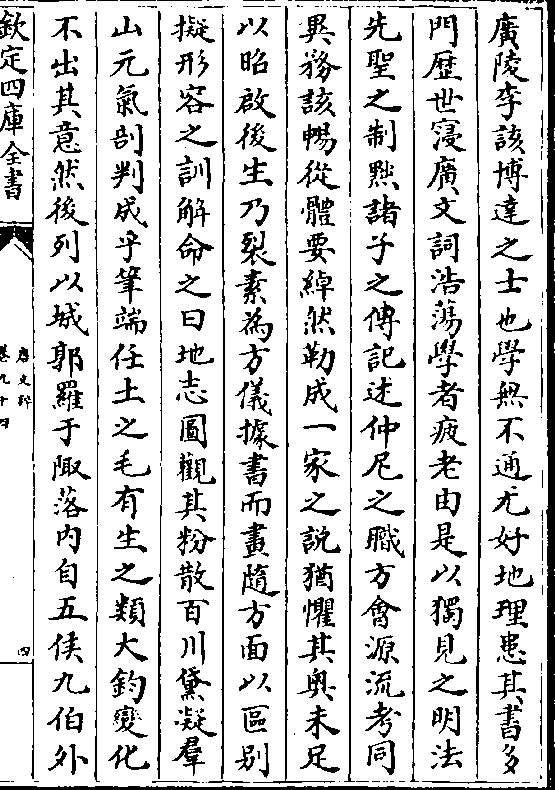 廣陵李該博達之士也學無不通尤好地理患其書多
門歴世寖廣文詞浩蕩學者疲老由是以獨見之明法
先聖之制黜諸子之傳記述仲尼之職方會源流考同
異務該暢從體要綽然勒成一家之說猶懼其奥未足
以昭啟後生乃裂素為方儀據書而畫隨方面以區别
擬形容之訓解命之曰地志圖觀其粉散百川黛凝羣
山元氣剖判成乎筆端任土之毛有生之類大鈞變化
不出其意然後列以城郭羅于陬落内自五侯九伯外
欽定四庫全書
唐文粹
卷九十四
四